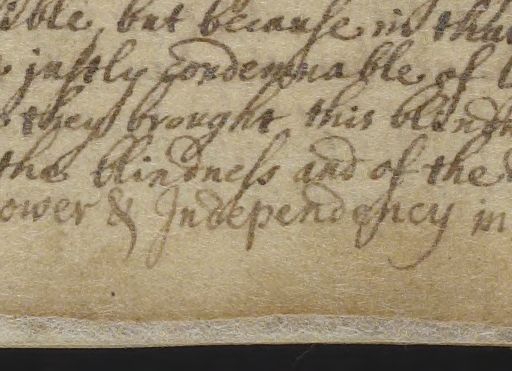 ible, but because in that
justly condemnable of
they brought this blindn
the blindness and of the
ower & Independency in